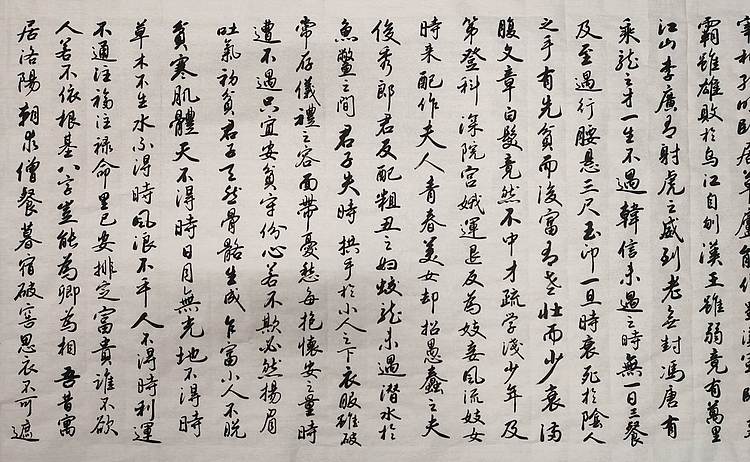 宰相孔明卧居草廬能作蜀漢軍師楚
霸雖雄敗於烏江自刎漢王雖弱竟有萬里
江山李廣有射虎之威到老無封馮唐有
乘龍之才一生不遇韓信未遇之時無一日三餐
及至遇行腰懸三尺玉印一旦時衰死於陰人
之手有先貧而後富有老壯而少衰滿
腹文章白髮竟然不中才疏学淺少年及
第登科深院宮娥運退反為妓妾風流妓女
時来配作夫人青春美女却招愚蠢之夫
俊秀郎君反配粗丑之婦蛟龍未遇潜水於
魚鱉之間君子失時拱手於小人之下衣服雖破
常存儀禮之容面帶憂愁每抱懷安之量時
遭不遇只宜安貧守份心若不欺必然揚眉
吐氣初貧君子天然骨骼生成乍富小人不脫
貧寒肌體天不得時日月無光地不得時
草木不生水不得時風浪不平人不得時利運
不通注福注禄命里已安排定富貴誰不欲
人若不依根基八字豈能為卿為相吾昔寓
居洛陽朝求僧餐暮宿破窖思衣不可遮